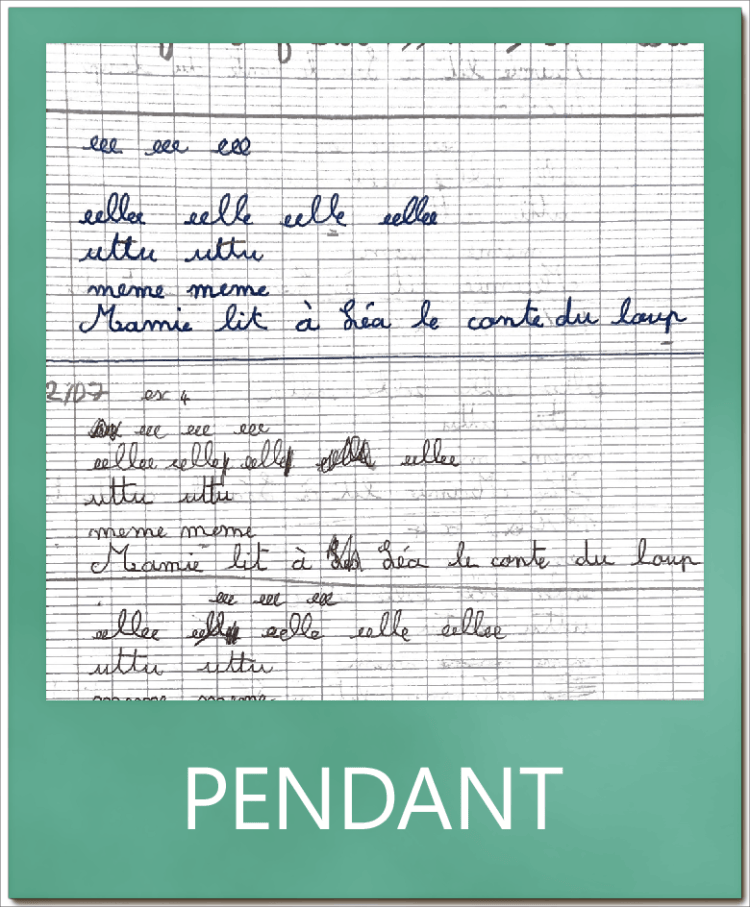 eee eee eee
eellee eelle eelle eellee
uttu uttu
meme meme
Mamie lit à Léa le conte du loup
2/07 ex 4
eee eee eee
eellee eellee eelle eellee
uttu uttu
meme meme
Mamie lit à Léa le conte du loup
eee eee eee
eellee eelle eelle eellee
uttu uttu
PENDANT